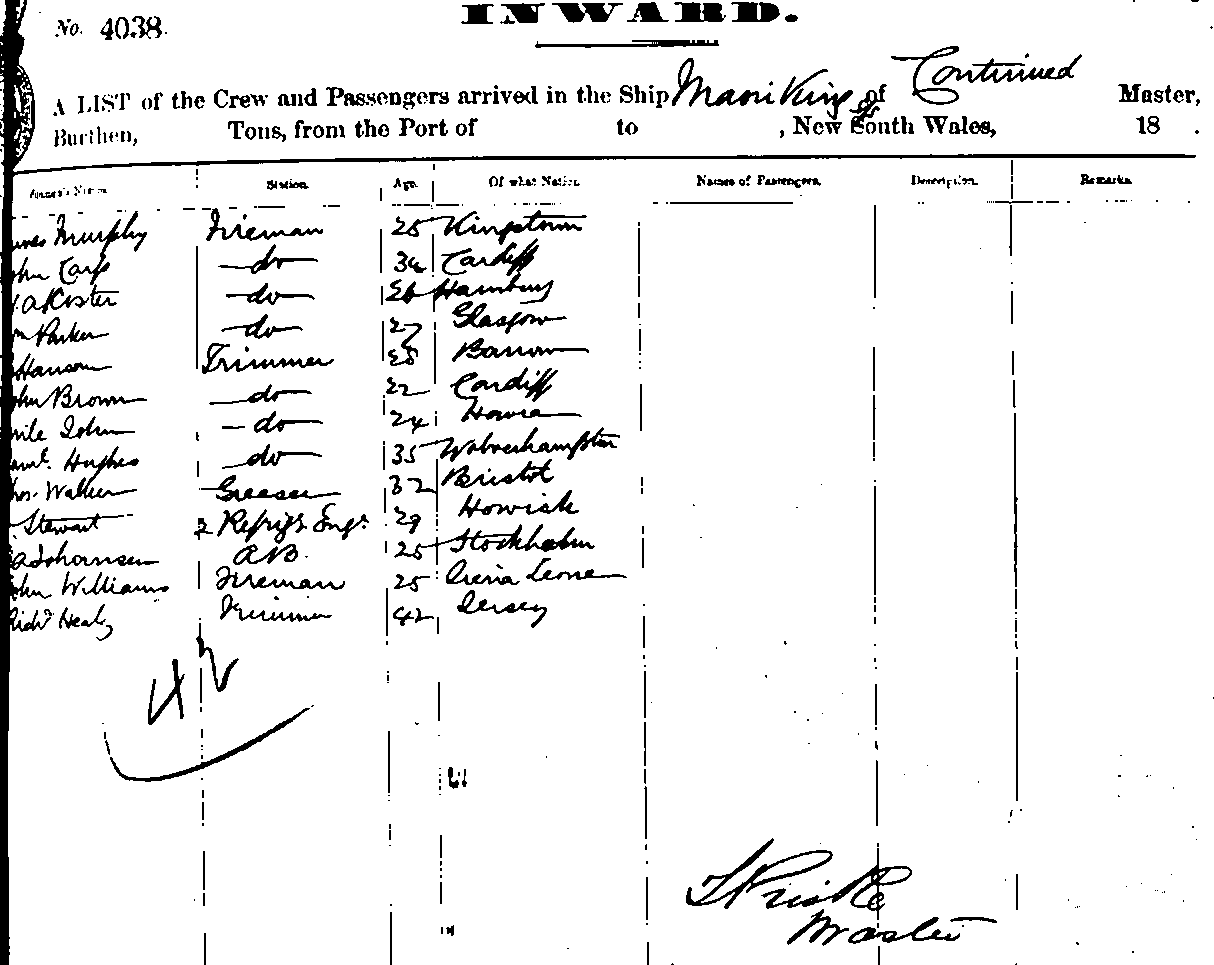 INWARD.
No. 4038.
Continued
A LIST of the Crew and Passengers arrived in the Ship Maori King of Master,
Burthen, Tons, from the Port of to , New South Wales, 18 .
Station. Age. Of what Nation. Names of Passengers. Description. Remarks.
Murphy Fireman 25 Kingstown
John do 34 Cardiff
Koster do 26 Hamburg
Parker do 27 Glasgow
Hanson Trimmer 28 Barrow
John Brown do 22 Cardiff
John do 24
Saml. Hughes do 35 Wolverhampton
Thos. Walker Greaser 32 Bristol
Stewart 2 Refrigr Engr 29 Howick
Johansen AB. 25 Stockholm
John Williams Fireman 25 Sierra Leone
Richd Healy Trimmer 42 Jersey
42
Master